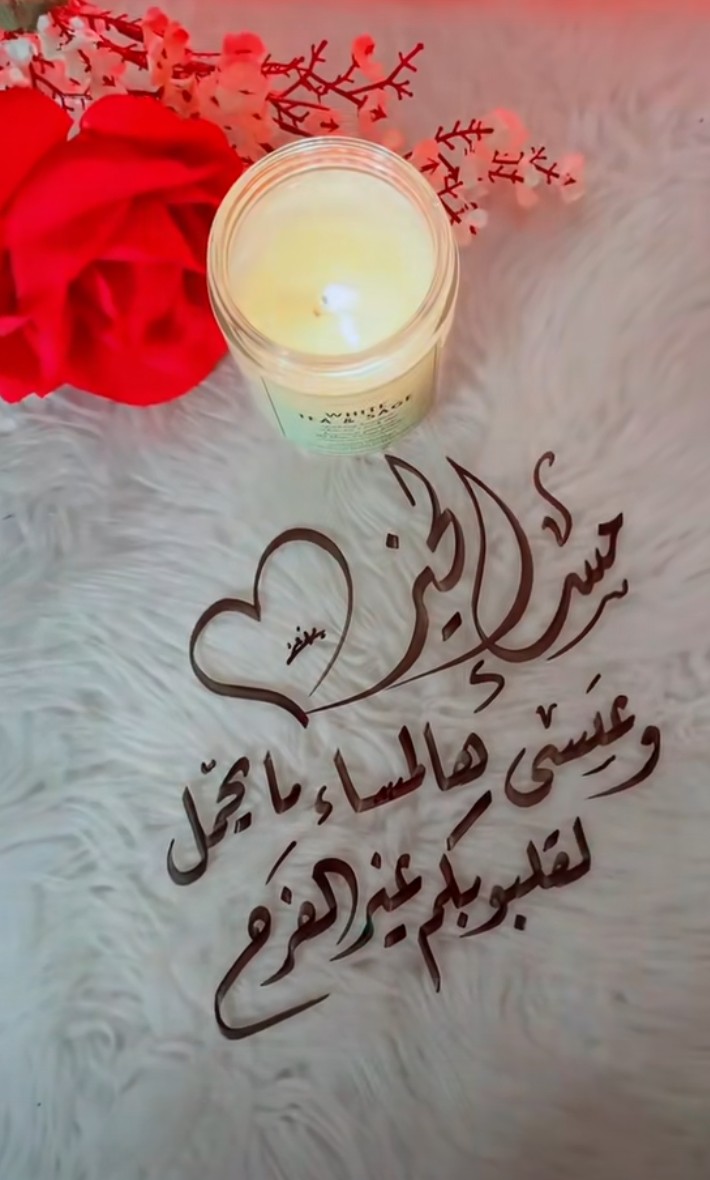 WHITE
TEA & SAGE
مساء الخير
وعسى هالمساء ما يحمّل
لقلوبكم غير الفرح